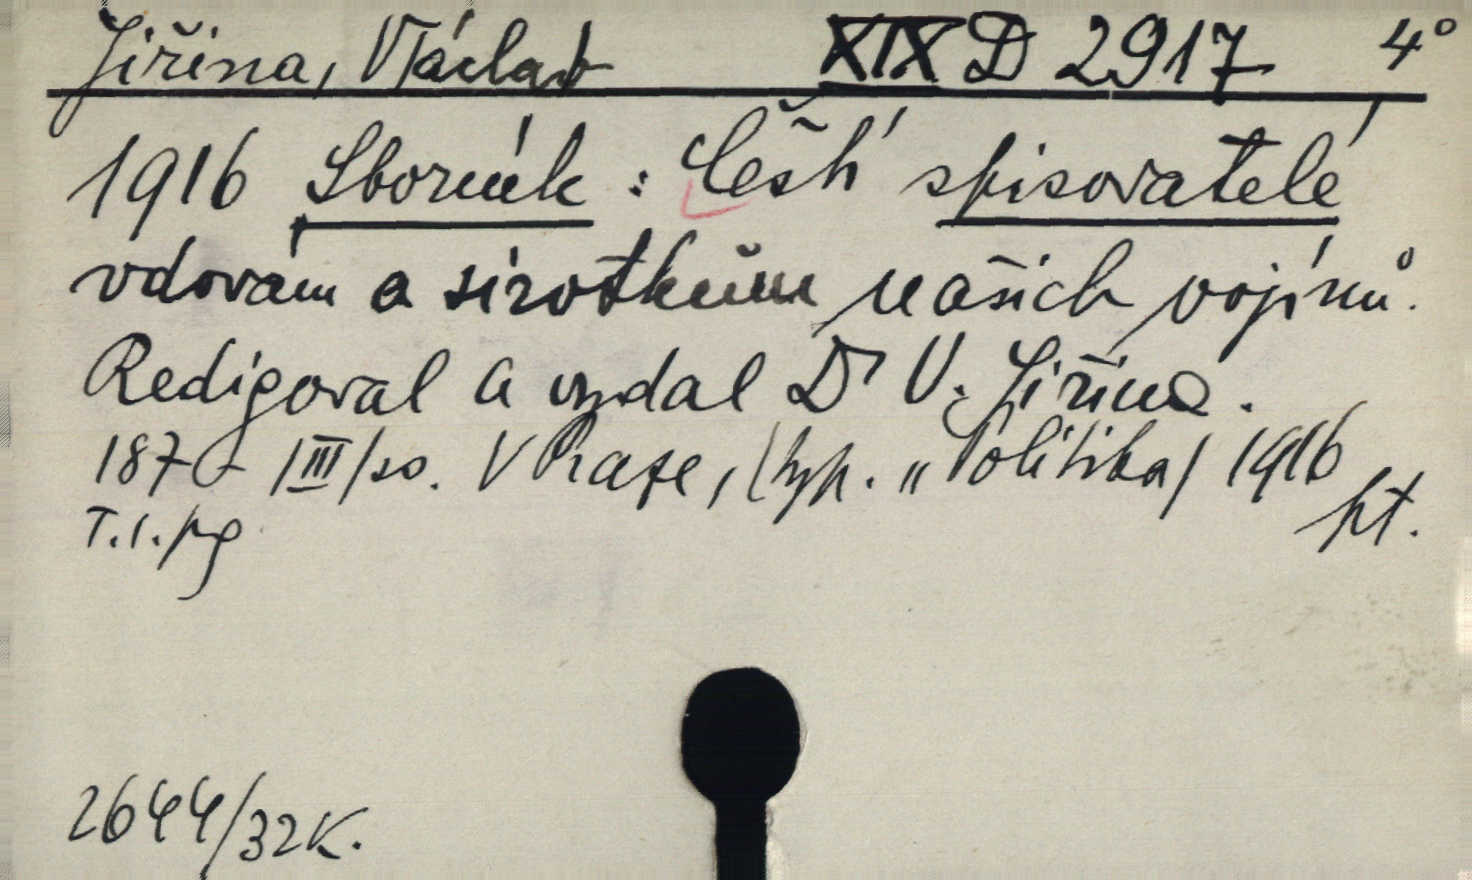 Jiřina, Václav XIX D 2917 4°
1916 Sborník : Čeští spisovatelé
vdovám a sirotkům našich vojínů.
Redigoval a vydal Dr V. Jiřina.
187 /III/ so. V Praze, /typ. „Politika/ 1916
pt.
T.1./pg
2644/32K.